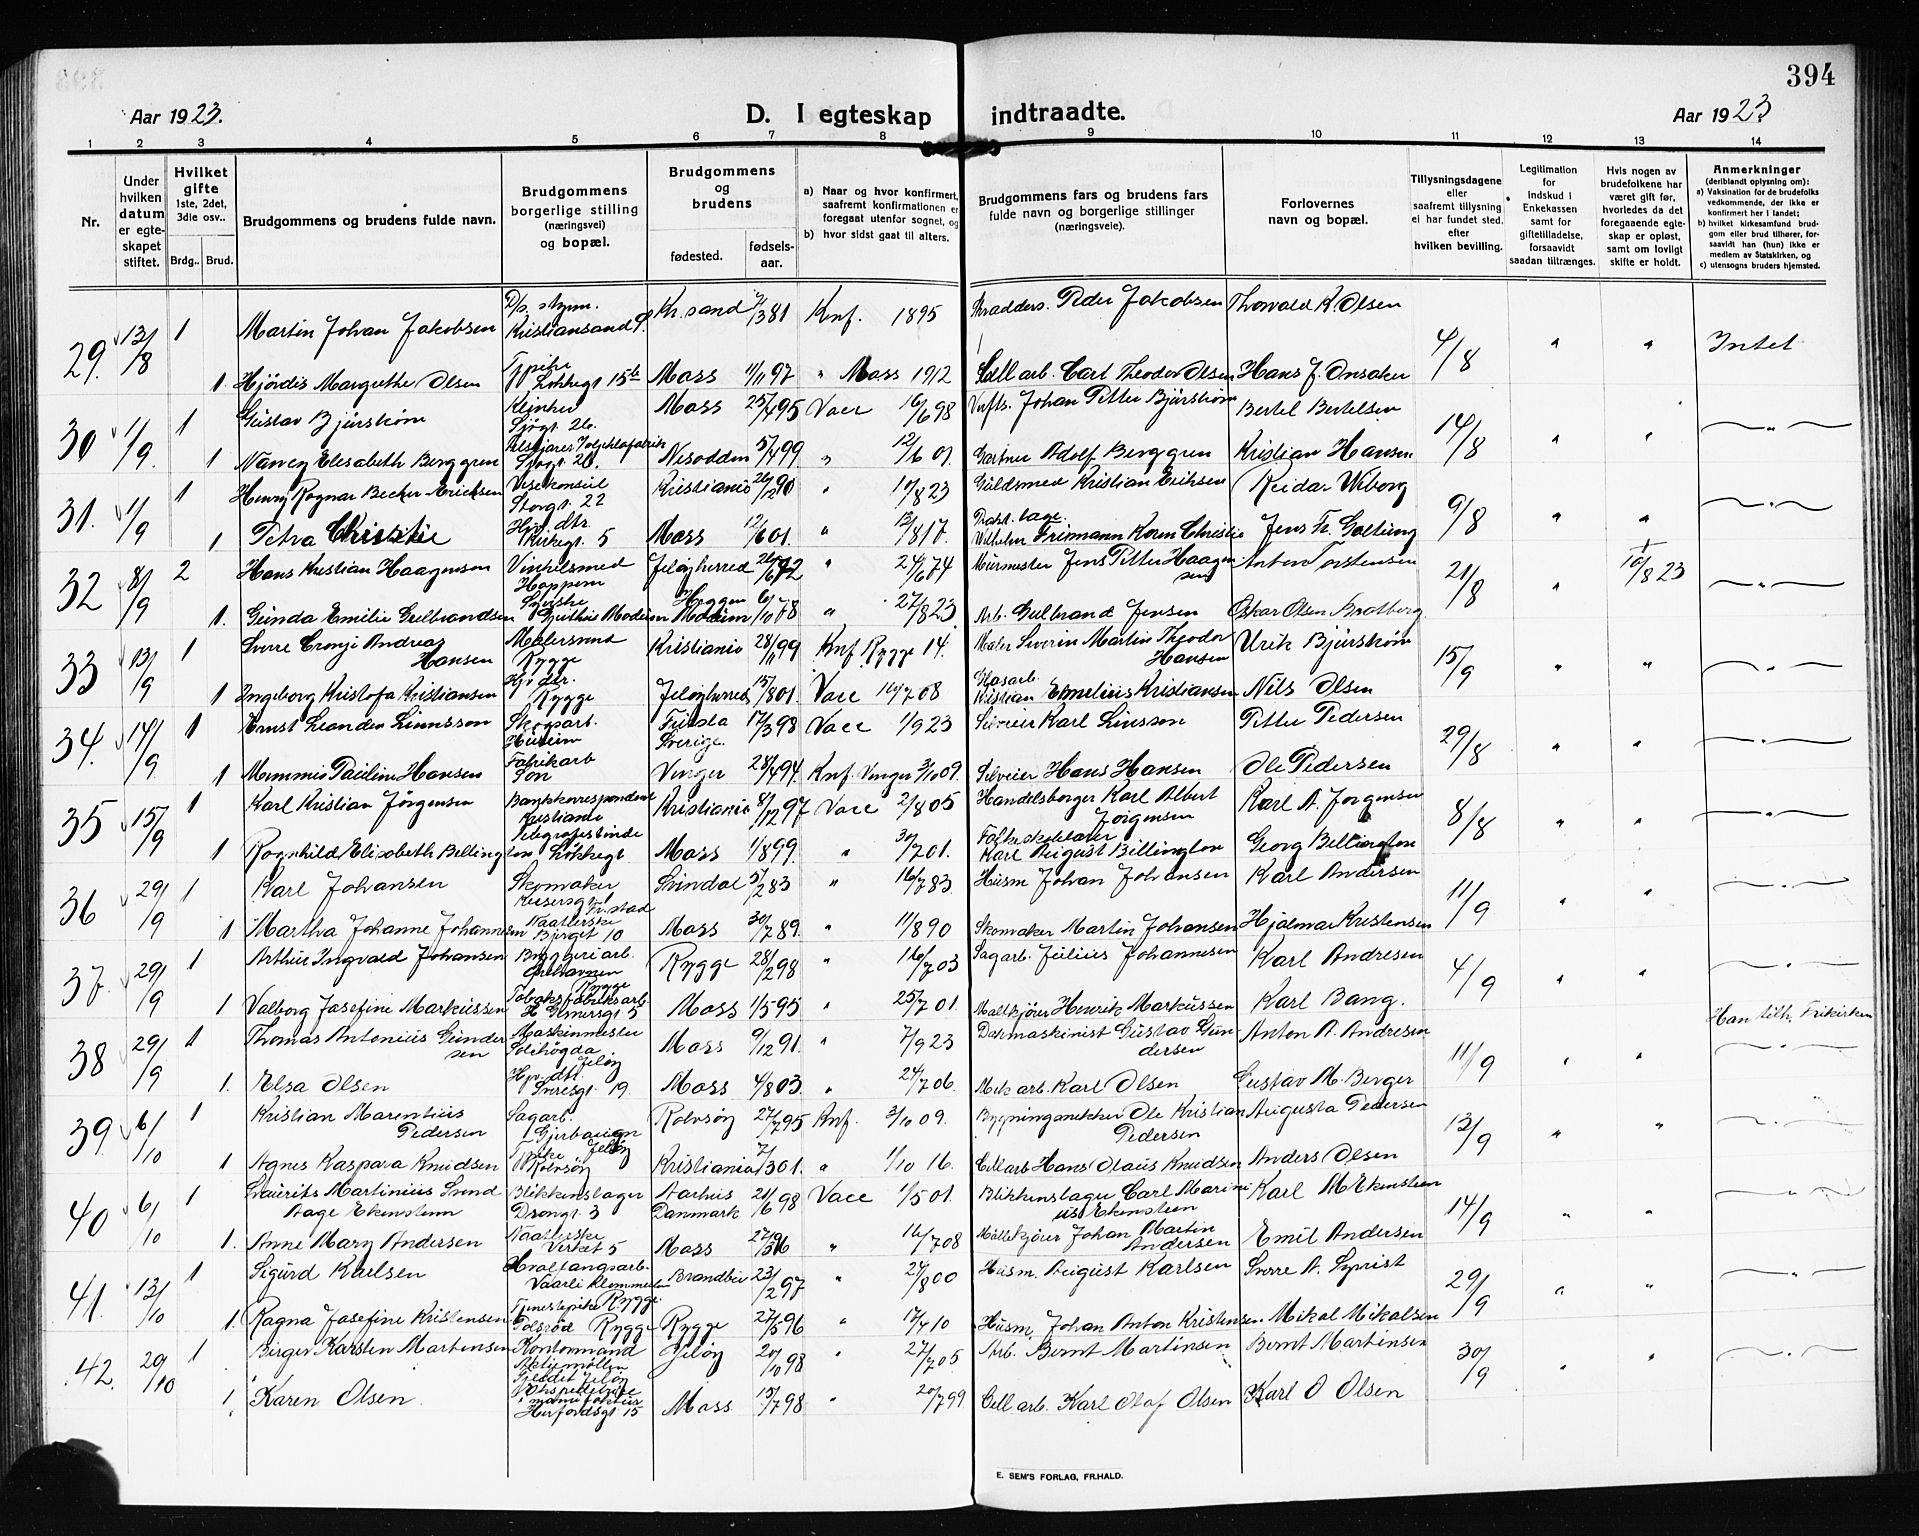 394
Aar 1923.
D. I egteskap indtraadte.
Aar 1923
1 2 3 4 5 6 7 8 9 10 11 12 13 14
Nr.
Under hvilken datum er egteskapet stiftet.
Hvilket gifte 1ste, 2det, 3die osv..
Brdg.. Brud.
Brudgommens og brudens fulde navn.
Brudgommens borgerlige stilling (næringsvei) og bopæl.
Brudgommens og brudens
fødested. fødselsaar.
a) Naar og hvor konfirmert, saafremt konfirmationen er foregaat utenfor sognet, og
b) hvor sidst gaat til alters.
Brudgommens fars og brudens fars fulde navn og borgerlige stillinger (næringsveie).
Forlovernes navn og bopæl.
Tillysningsdagene eller saafremt tillysning ei har fundet sted. efter hvilken bevilling.
Legitimation for indskud i Enkekassen samt for giftetilladelse, forsaavidt saadan tiltrænges.
Hvis nogen av brudefolkene har været gift før, hvorledes da det foregaaende egteskap er opløst, samt om lovligt skifte er holdt.
Anmerkninger (deriblandt oplysning om): a) Vaksination for de brudefolks vedkommende, der ikke er konfirmert her i landet; b) hvilket kirkesamfund brudgom eller brud tilhører, forsaavidt han (hun) ikke er medlem av Statskirken, og c) utensogns bruders hjemsted.
29. 13/8 1 Martin Johan Jakobsen Kristiansand S. Kr.sand 81 Knf. 1895 Peder Jakobsen Thorvald K. Olsen 4/8 " " Intet
1. Hjördis Margrethe Olsen Løkkegt 15b Moss 11/11 97 " Moss 1912 Cell arb. Carl Theodor Olsen Hans J. Onsaker
30 1/9 1 Gustav Bjürstrøm Sjøgt. 26. Moss 25/4 95 Vacc 16/6 98 Johan Petter Bjürstrøm Bertel Bertelsen 14/8 " "
1 Nancy Elisabeth Berggren Sjøgt. 26. Nesodden 5/4 99 " 12/6 01 Gartner Adolf Berggren Kristian Hansen
31. 1/9 1 Henry Ragnar Becker-Ericksen Visekonsul Storgt. 22 Kristiania 26/2 90 " 10/8 23 Guldsmed Kristian Eriksen Reidar Wiborg 9/8 " "
1 Petra Christie Hjv. dtr. Kirkegt. 5 Moss 12/6 01. " 13/8 17. Wilhelm Frimann Koren Christie Jens Fr. Galtung
32 8/9 2 Hans Kristian Haagensen Vinkelsmed Hoppern Jeløyherred 26/6 72 " 24/6 74 Murmester Jens Petter Haagensen Anton Torstensen 21/8 " 10/8 23
1. Gunda Emilie Gulbrandsen Modum 6/10 08 " 27/8 23. Arb. Gulbrand Jensen Oskar Olsen Bratberg
33 13/9 1 Sverre Cronje Andreas Hansen Rygge Kristiania 28/11 99 Knf Rygge 14. Maler Severin Martin Theodor Hansen Urik Bjürstrøm 15/9 " "
1 Ingeborg Kristofa Kristiansen Hjv. dtr. Rygge Jeløyherred 15/8 01. Vacc 14/7 08 Glasarb. Kristian Emelius Kristiansen Nils Olsen
34. 14/9 1 Ernst Leander Linusson Skogsarb. Sverige. 17/3 98 Vacc 1/9 23 Karl Linsson Petter Pedersen 29/8 " "
1 Mummis Pauline Hansen Fabrikarb Son Vinger 28/4 94. Knf. Vinger 3/10 09. Hans Hansen Ole Pedersen
35 15/9 1 Karl Kristian Jörgensen Bankkorrespondent Kristiania Kristiania 8/12 97 Vacc 2/8 05 Handelsborger Karl Albert Jörgensen Karl A. Jorgensen 8/8 " "
1 Ragnhild Elisabeth Bellington Løkkegt Moss 1/8 99 " 30/7 01. Karl August Billington Georg Bellington
36 29/9 1 Karl Johansen Skomaker Fr.stad Svindal 5/2 83 " 16/7 83 Husm Johan Johansen Karl Andersen 11/9 " "
1 Martha Johanne Johannesen Naatlerske Bjerget 10 Moss 30/7 89. " 11/8 90 Skomaker Martin Johansen Hjalmar Kristensen
37. 29/9 1 Arthur Ingvald Johansen Bryggeriarb. Rygge Rygge 28/2 98 " 16/7 03 Sagarb. Julius Johannesen Karl Andresen 4/9 " "
1 Valborg Josefine Markussen Tobaksfabriksarb. Moss 1/5 95 " 25/7 01. Møllekjörer Henrik Markussen Karl Bang.
38 29/9 1 Thomas Antonius Gundersen Maskinmester Solehøgda Jeløy Moss 9/12 91. " 7/9 23 Gustav Gundersen Anton A. Andresen 11/9 " " Han tilh. Frikirken
1. Elsa Olsen Hjv. dtr. 19. Moss 4/8 03 " 24/7 06. Mek arb. Karl Olsen Gustav M. Berger
39. 6/10 1 Kristian Marentius Pedersen Sagarb. Jeløy Rolvsöy 27/7 95 Knf. 3/10 09. Bygningssnekker Ole Kristian Pedersen Augusta Pedersen 13/9 " "
1 Agnes Kaspara Knudsen Rolvsöy Kristiania 7/3 01. " 1/10 16. Cellarb Hans Olaus Knudsen Anders Olsen
40 6/10 1 Laurits Martinius Lund Aage Ekensteen Blikkenslager Drongt. 3 Aarhus Danmark 21/6 98 Vacc 1/5 01. Blikkenslager Carl Marinius Ekensteen Karl M Ekensteen 14/9 " "
1. Anne Mary Andersen Naatlerske Verket 5 Moss 27/3 96 " 16/7 08 Møllekjörer Johan Martin Andersen Emil Andersen
41. 13/10 1 Sigurd Karlsen Hvalfangsarb. Brandbu 23/2 97 " 24/8 00 Husm. August Karlsen Sverre A. Syprist 29/9 " "
1. Ragna Josefine Kristensen Tjenestepike Rygge. Rygge Rygge 27/5 96 " 17/4 10 Husm. Johan Anton Kristensen Mikal Mikalsen
42. 20/10 1 Birger Karsten Martensen Kontormand Jeløy Jeløy 20/10 98 " 27/7 05 Arb. Bernt Martinsen Bernt Martinsen 30/9 " "
1. Karen Olsen. Herfordsgt. 15 Moss. 15/7 98 " 20/7 99 Cell arb. Karl Olaf Olsen Karl O Olsen
E. SEM'S FORLAG, FR.HALD.